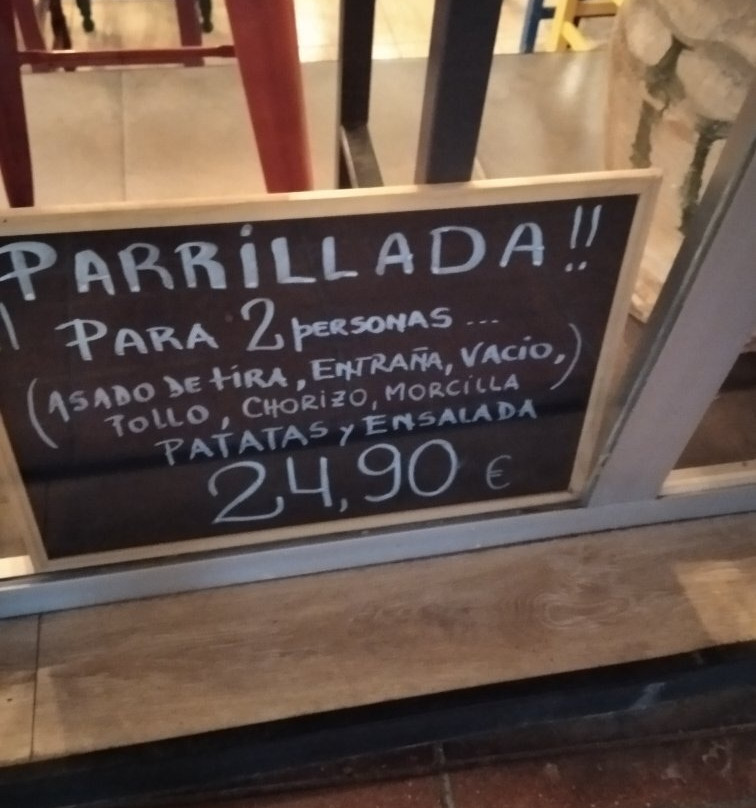 PARRILLADA!!
¡¡ PARA 2 PERSONAS ...
(ASADO DE TIRA, ENTRAÑA, VACIO,)
POLLO, CHORIZO, MORCILLA
PATATAS Y ENSALADA
24,90 €